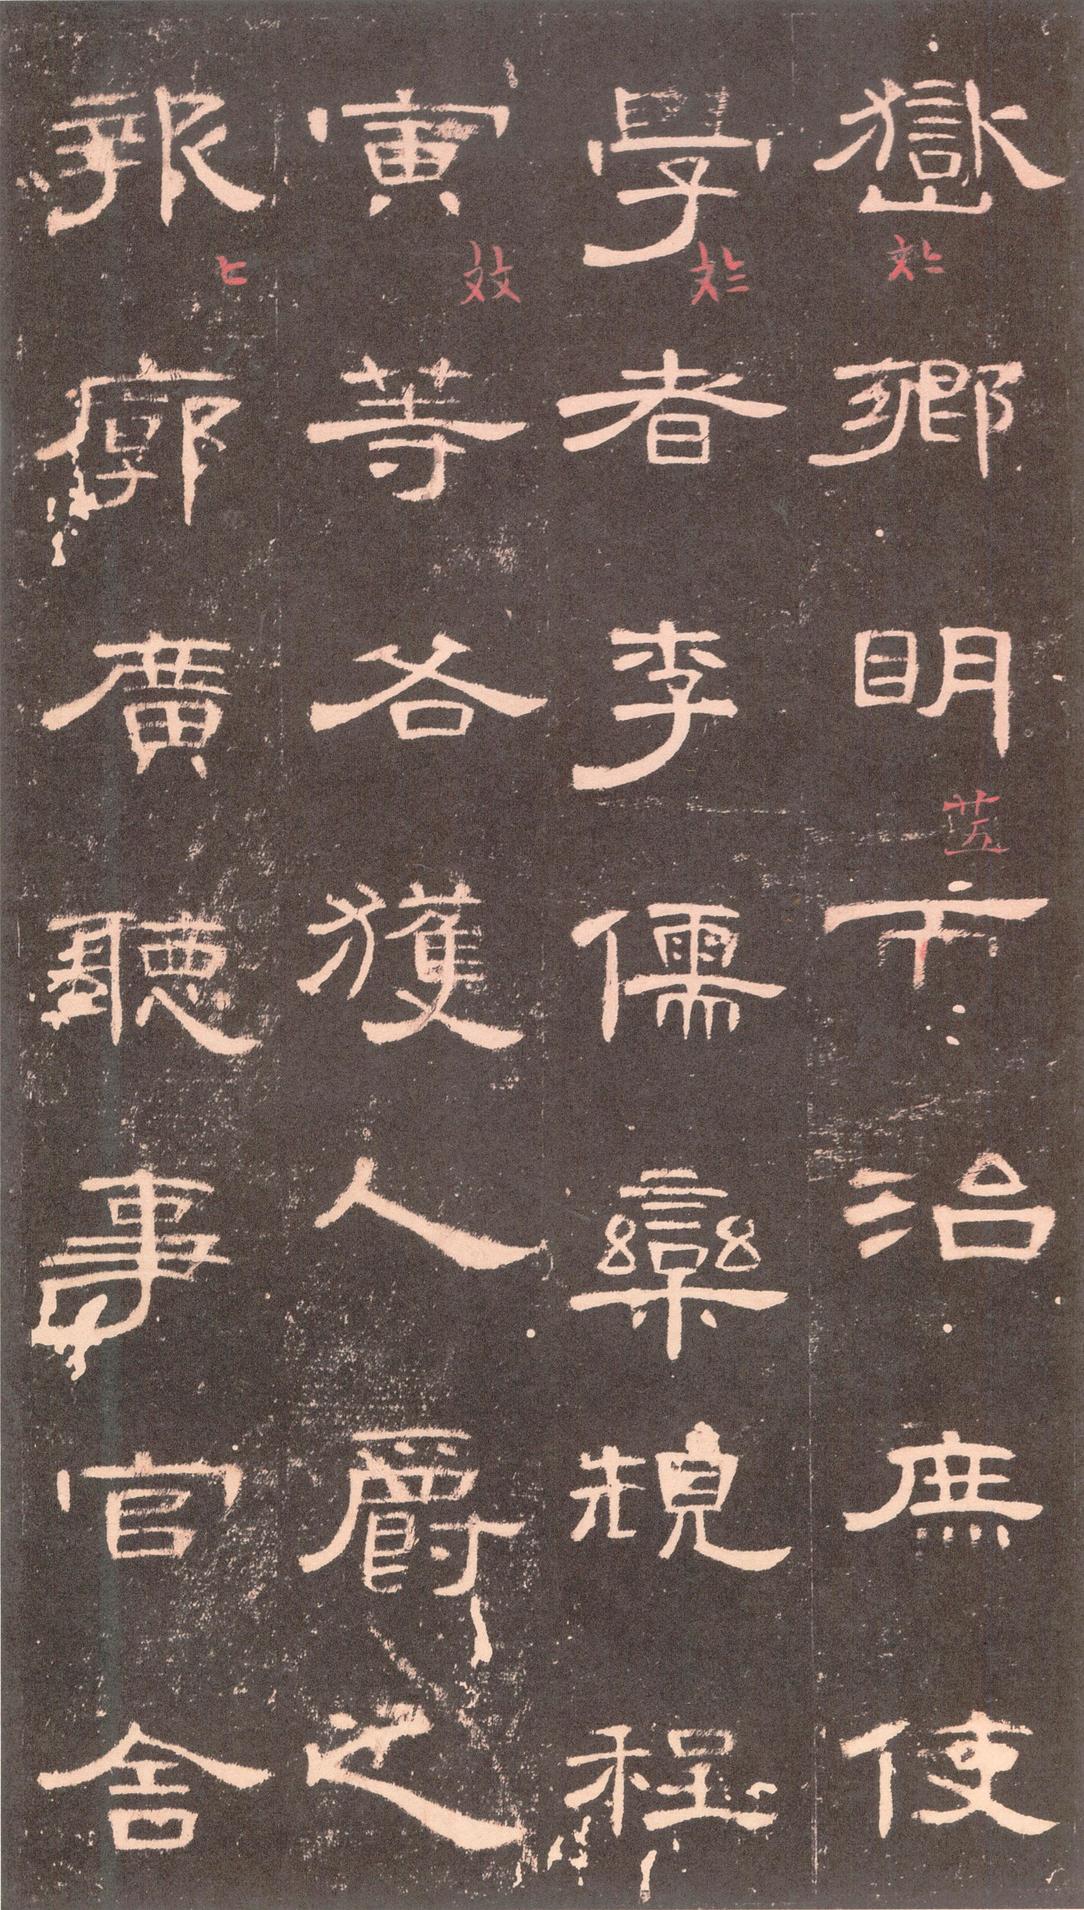 嶽鄉明治庶使
學者李儒欒規程
寅等各獲人爵之
報廓廣聽事官舍